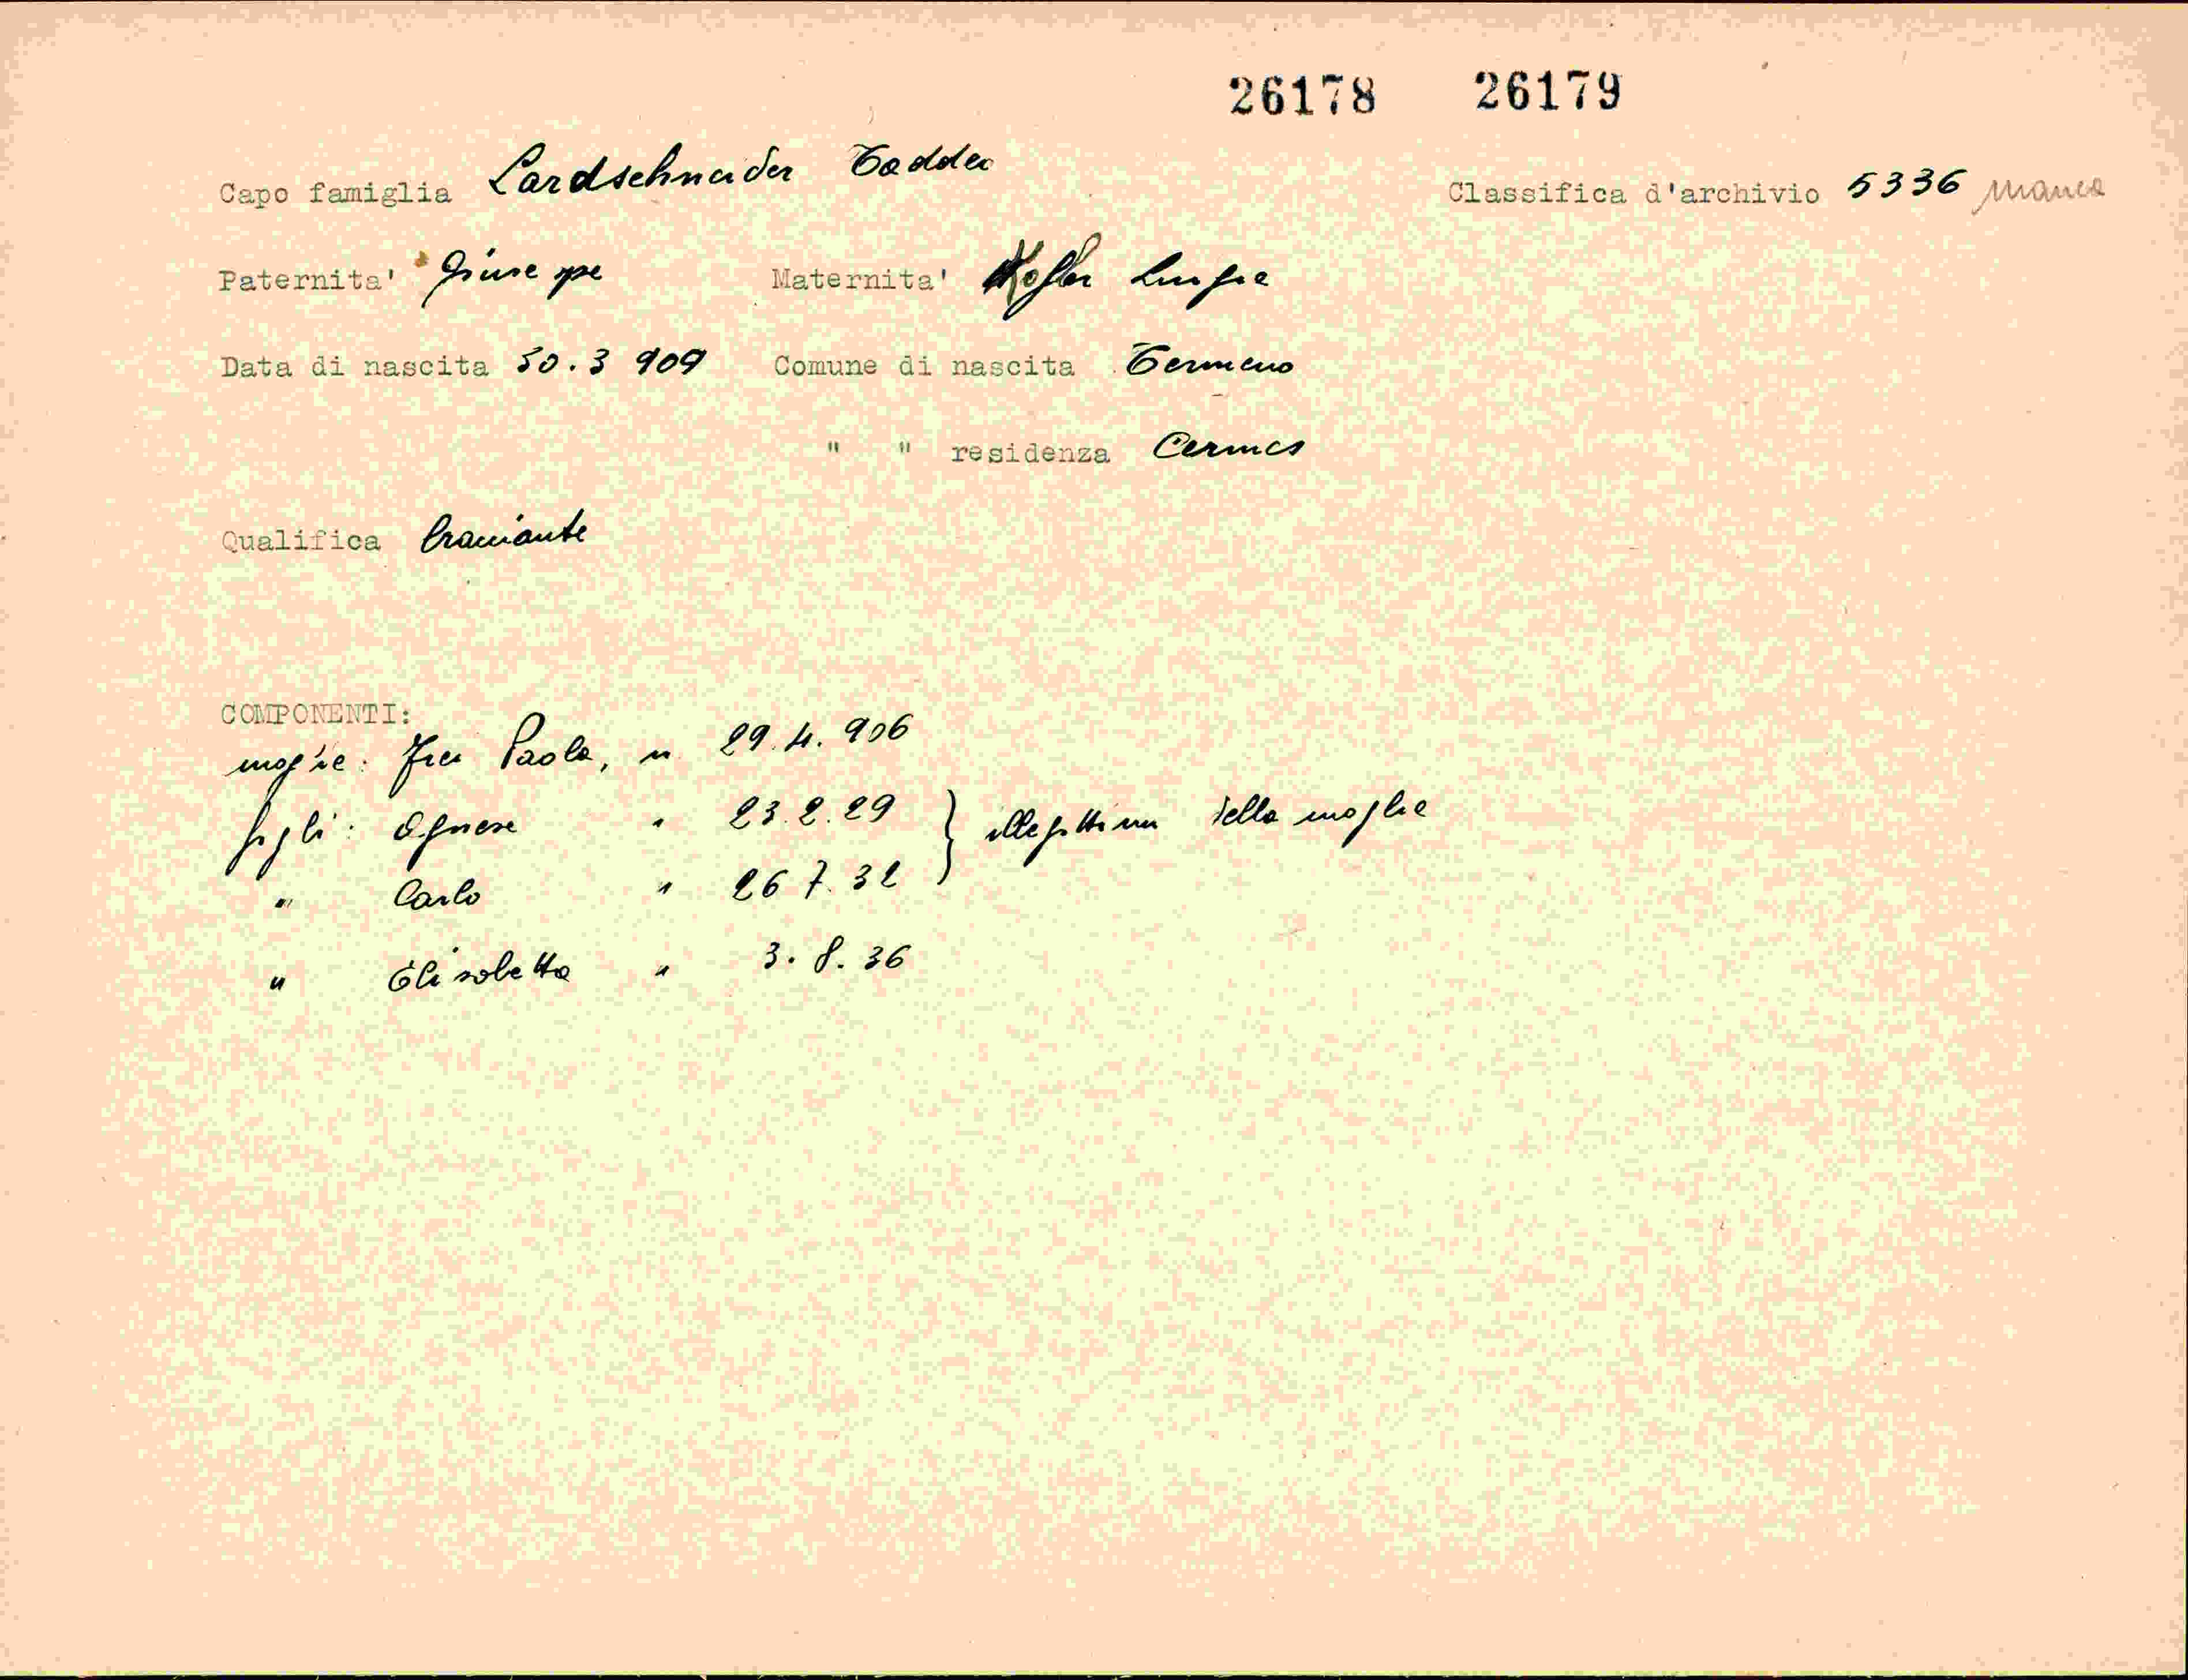 26178 26179
Capo famiglia Lardschneider Taddeo Classifica d'archivio 5336 manca
Paternita' Giuseppe Maternita' Kofler Luigia
Data di nascita 30.3 909 Comune di nascita Termeno
" " residenza Cermes
Qualifica bracciante
COMPONENTI:
moglie: Frei Paola, n 29.4.906
figli: Agnese " 23.2.29 } illegittimi della moglie
" Carlo " 26 7.32
" Elisabetta " 3.8.36